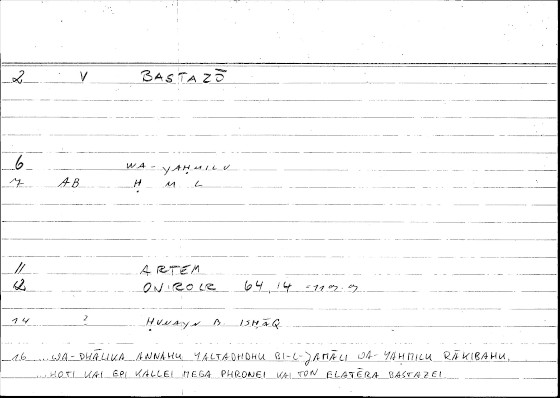 2 V BASTAZŌ
6 WA-YAḤMILU
7 AB Ḥ M L
11 ARTEM
12 ONIROCR 64,14
14 ? ḤUNAYN B. ISḤĀQ
16 ...WA-DHĀLIKA ANNAHU YALTADHDHU BI-L-JAMĀLI WA-YAḤMILU RĀKIBAHU.
...HOTI KAI EPI KALLEI MEGA PHRONEI KAI TON ELATĒRA BASTAZEI.